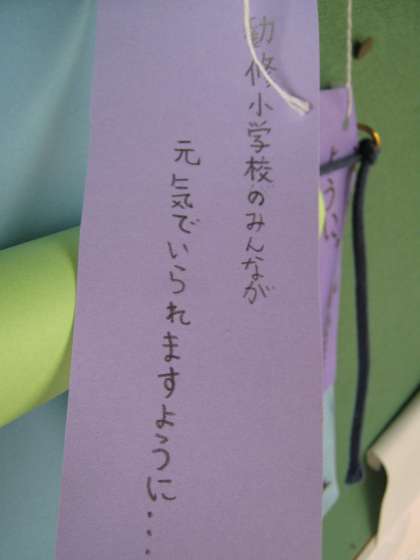 勧修小学校のみんなが
元気でいられますように・・・
よう